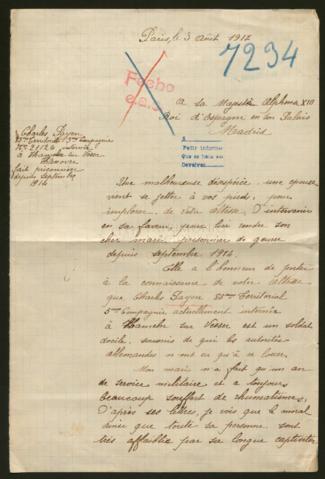 Paris, le 3 Août 1917
7294
Fecho
A Sa Majesté Alphonse XIII
Roi d'Espagne en son Palais
Madrid
Charles Fayon
5me Compagnie
No 2126 interné
à Hameln sur Weser
Hanovre
fait prisonnier
depuis septembre
1914
A
Petit informe
Que se hace en
Une malheureuse désespérée, une épouse
vient se jetter à vos pieds, pour
implorer de votre altesse, D'intervenir
en sa faveur, pour lui rendre son
cher mari, prisonnier de guerre
depuis septembre 1914.
Elle a l'honneur de porter
à la connaissance de votre altesse
que Charles Fayon Territorial
5me Compagnie actuellement interné
à Hameln sur Weser est un soldat
docile, soumis de qui les autorités
allemandes n'ont eu qu'à se louer.
Mon mari n'a fait qu'un an
de service militaire et a toujours
beaucoup souffert de rhumatismes,
D'après ses lettres, je vois que le moral
ainsi que toute sa personne sont
très affaiblie par sa longue captivité